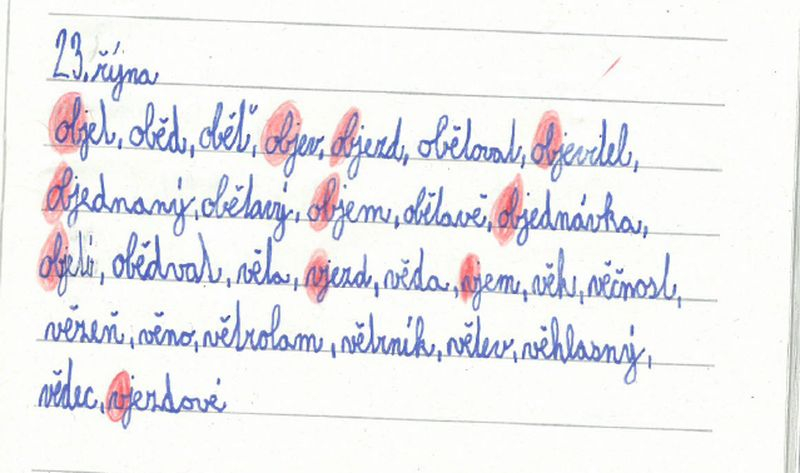 23. října
objel, oběd, oběť, objev, objezd, obětoval, objevitel,
objednaný, obětavý, objem, obětavě, objednávka,
objeli, obědval, věta, vjezd, věda, vjem, věk, věčnost,
vězeň, věno, větrolam, větrník, větev, věhlasný,
vědec, vjezdové